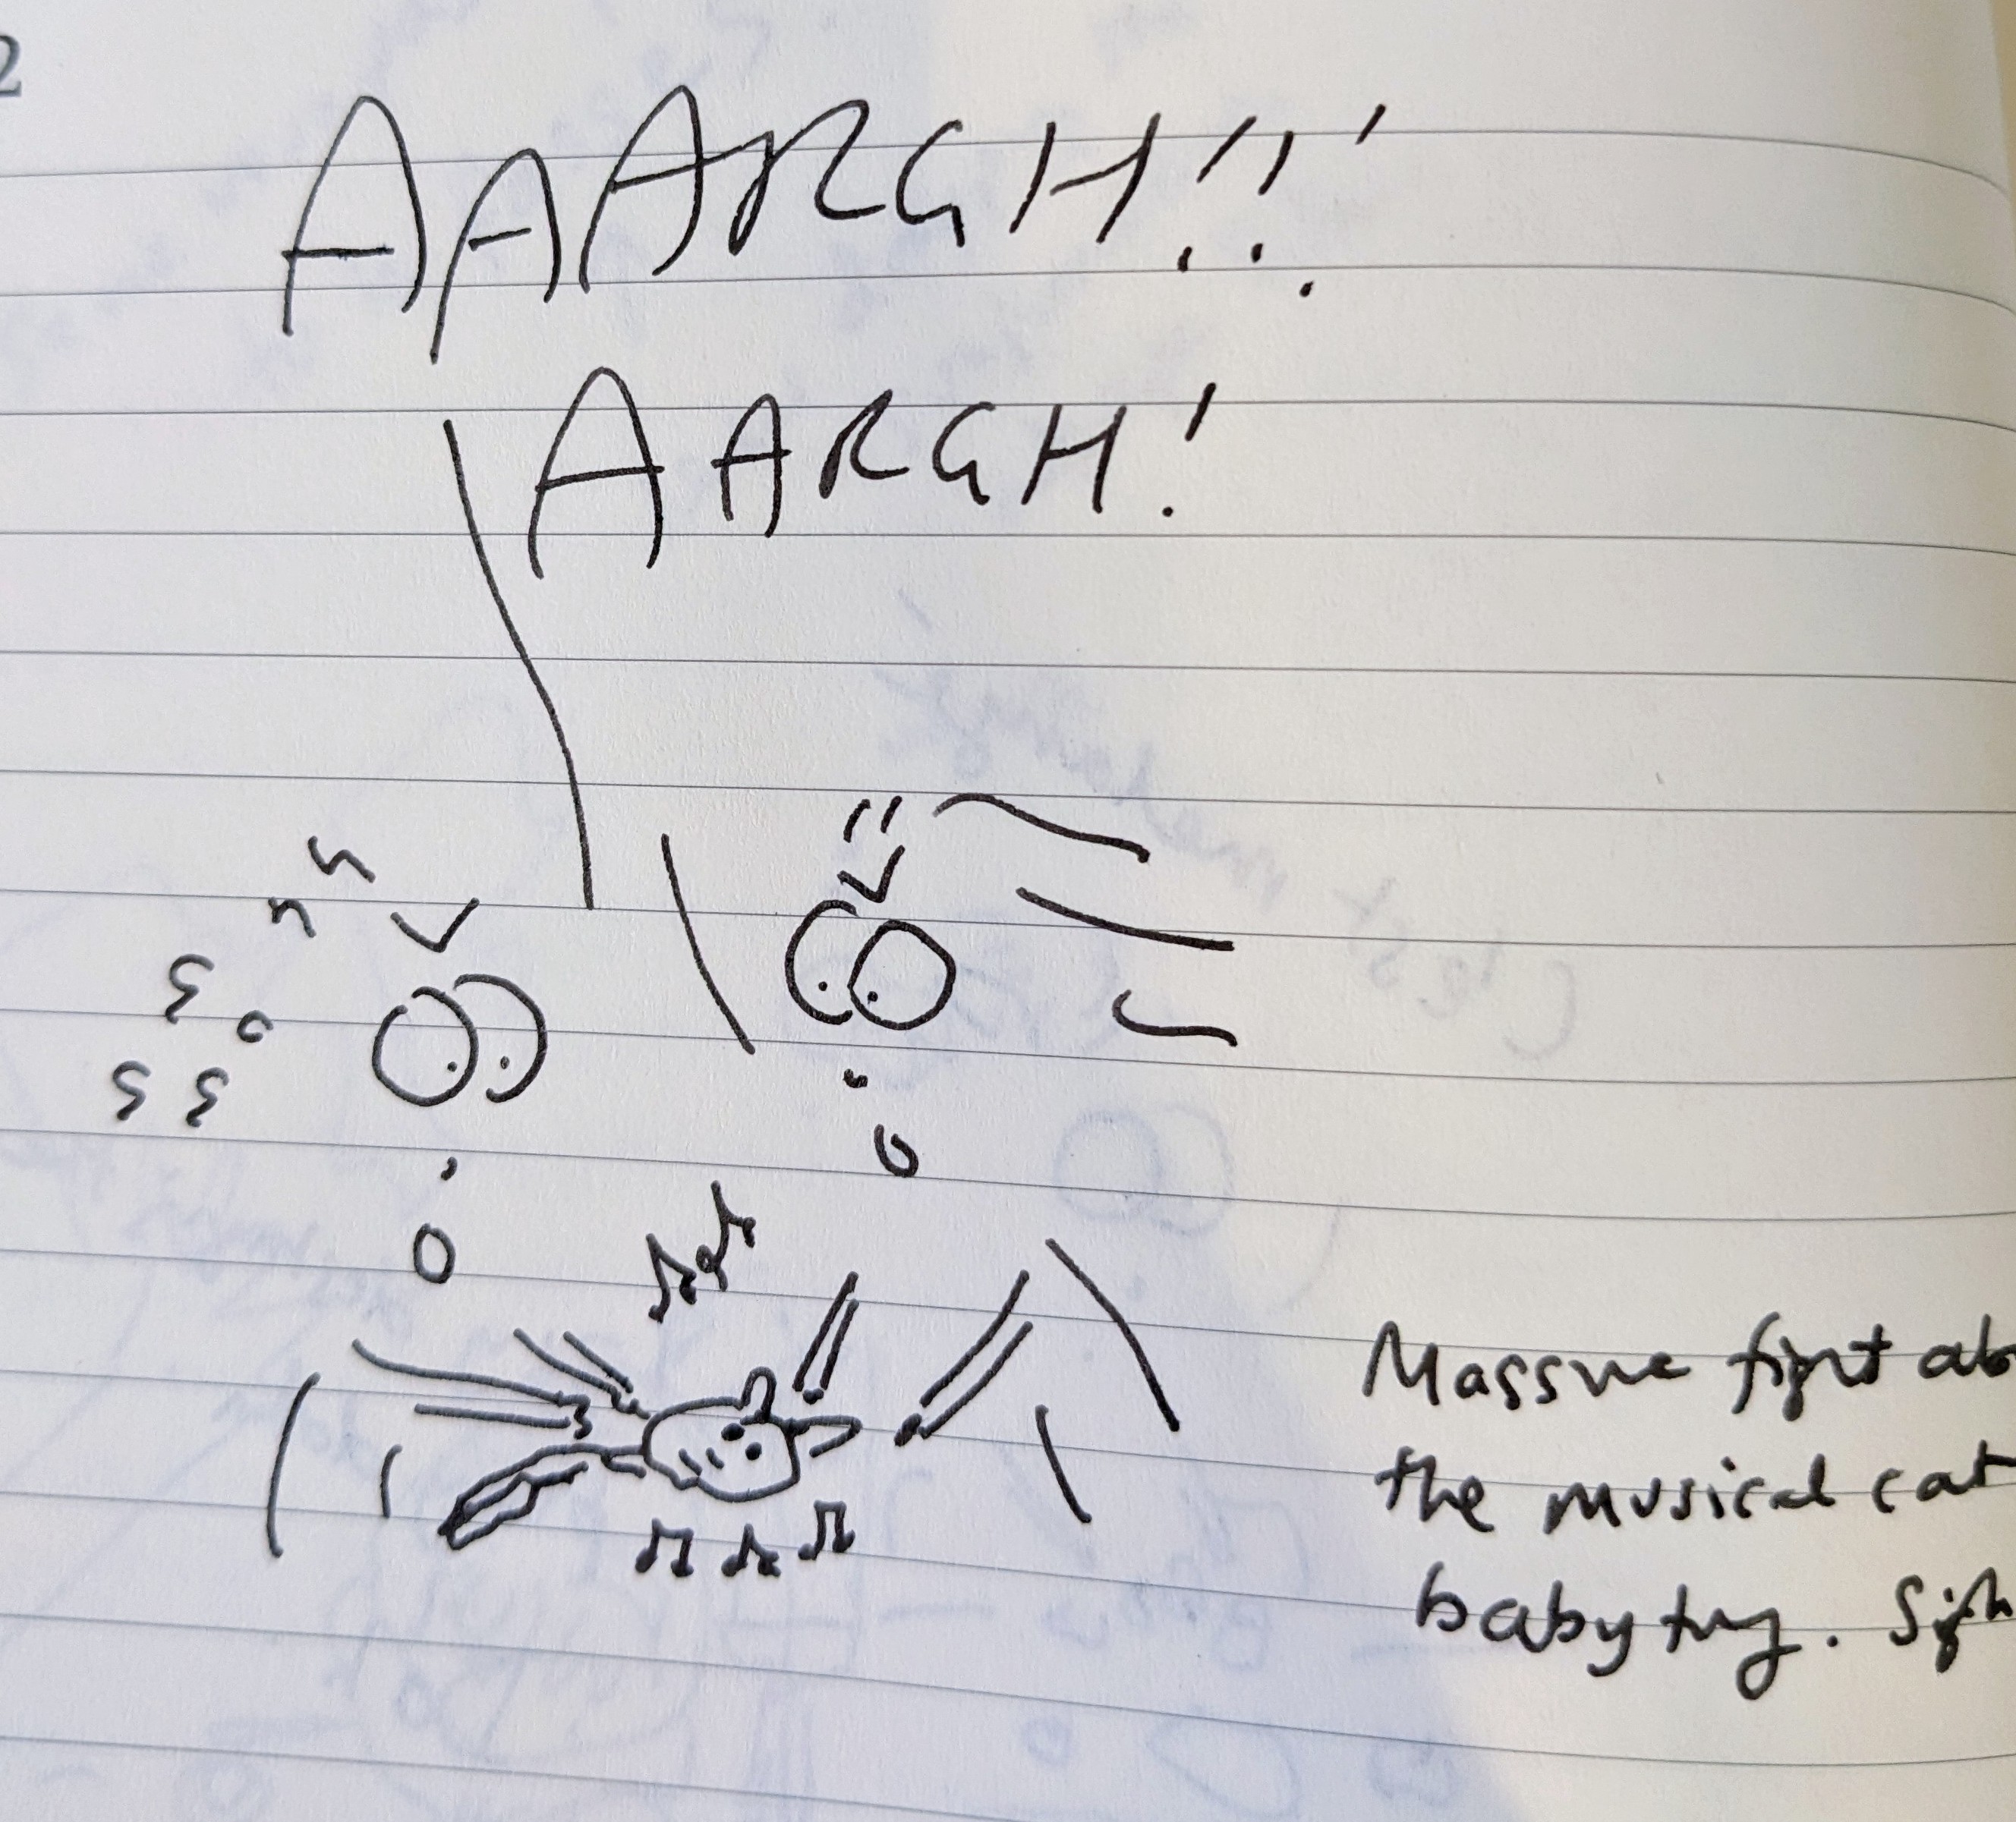 2
AAARGH!!!
AARGH!
Massive fight ab
the musical cat
baby toy. Sigh